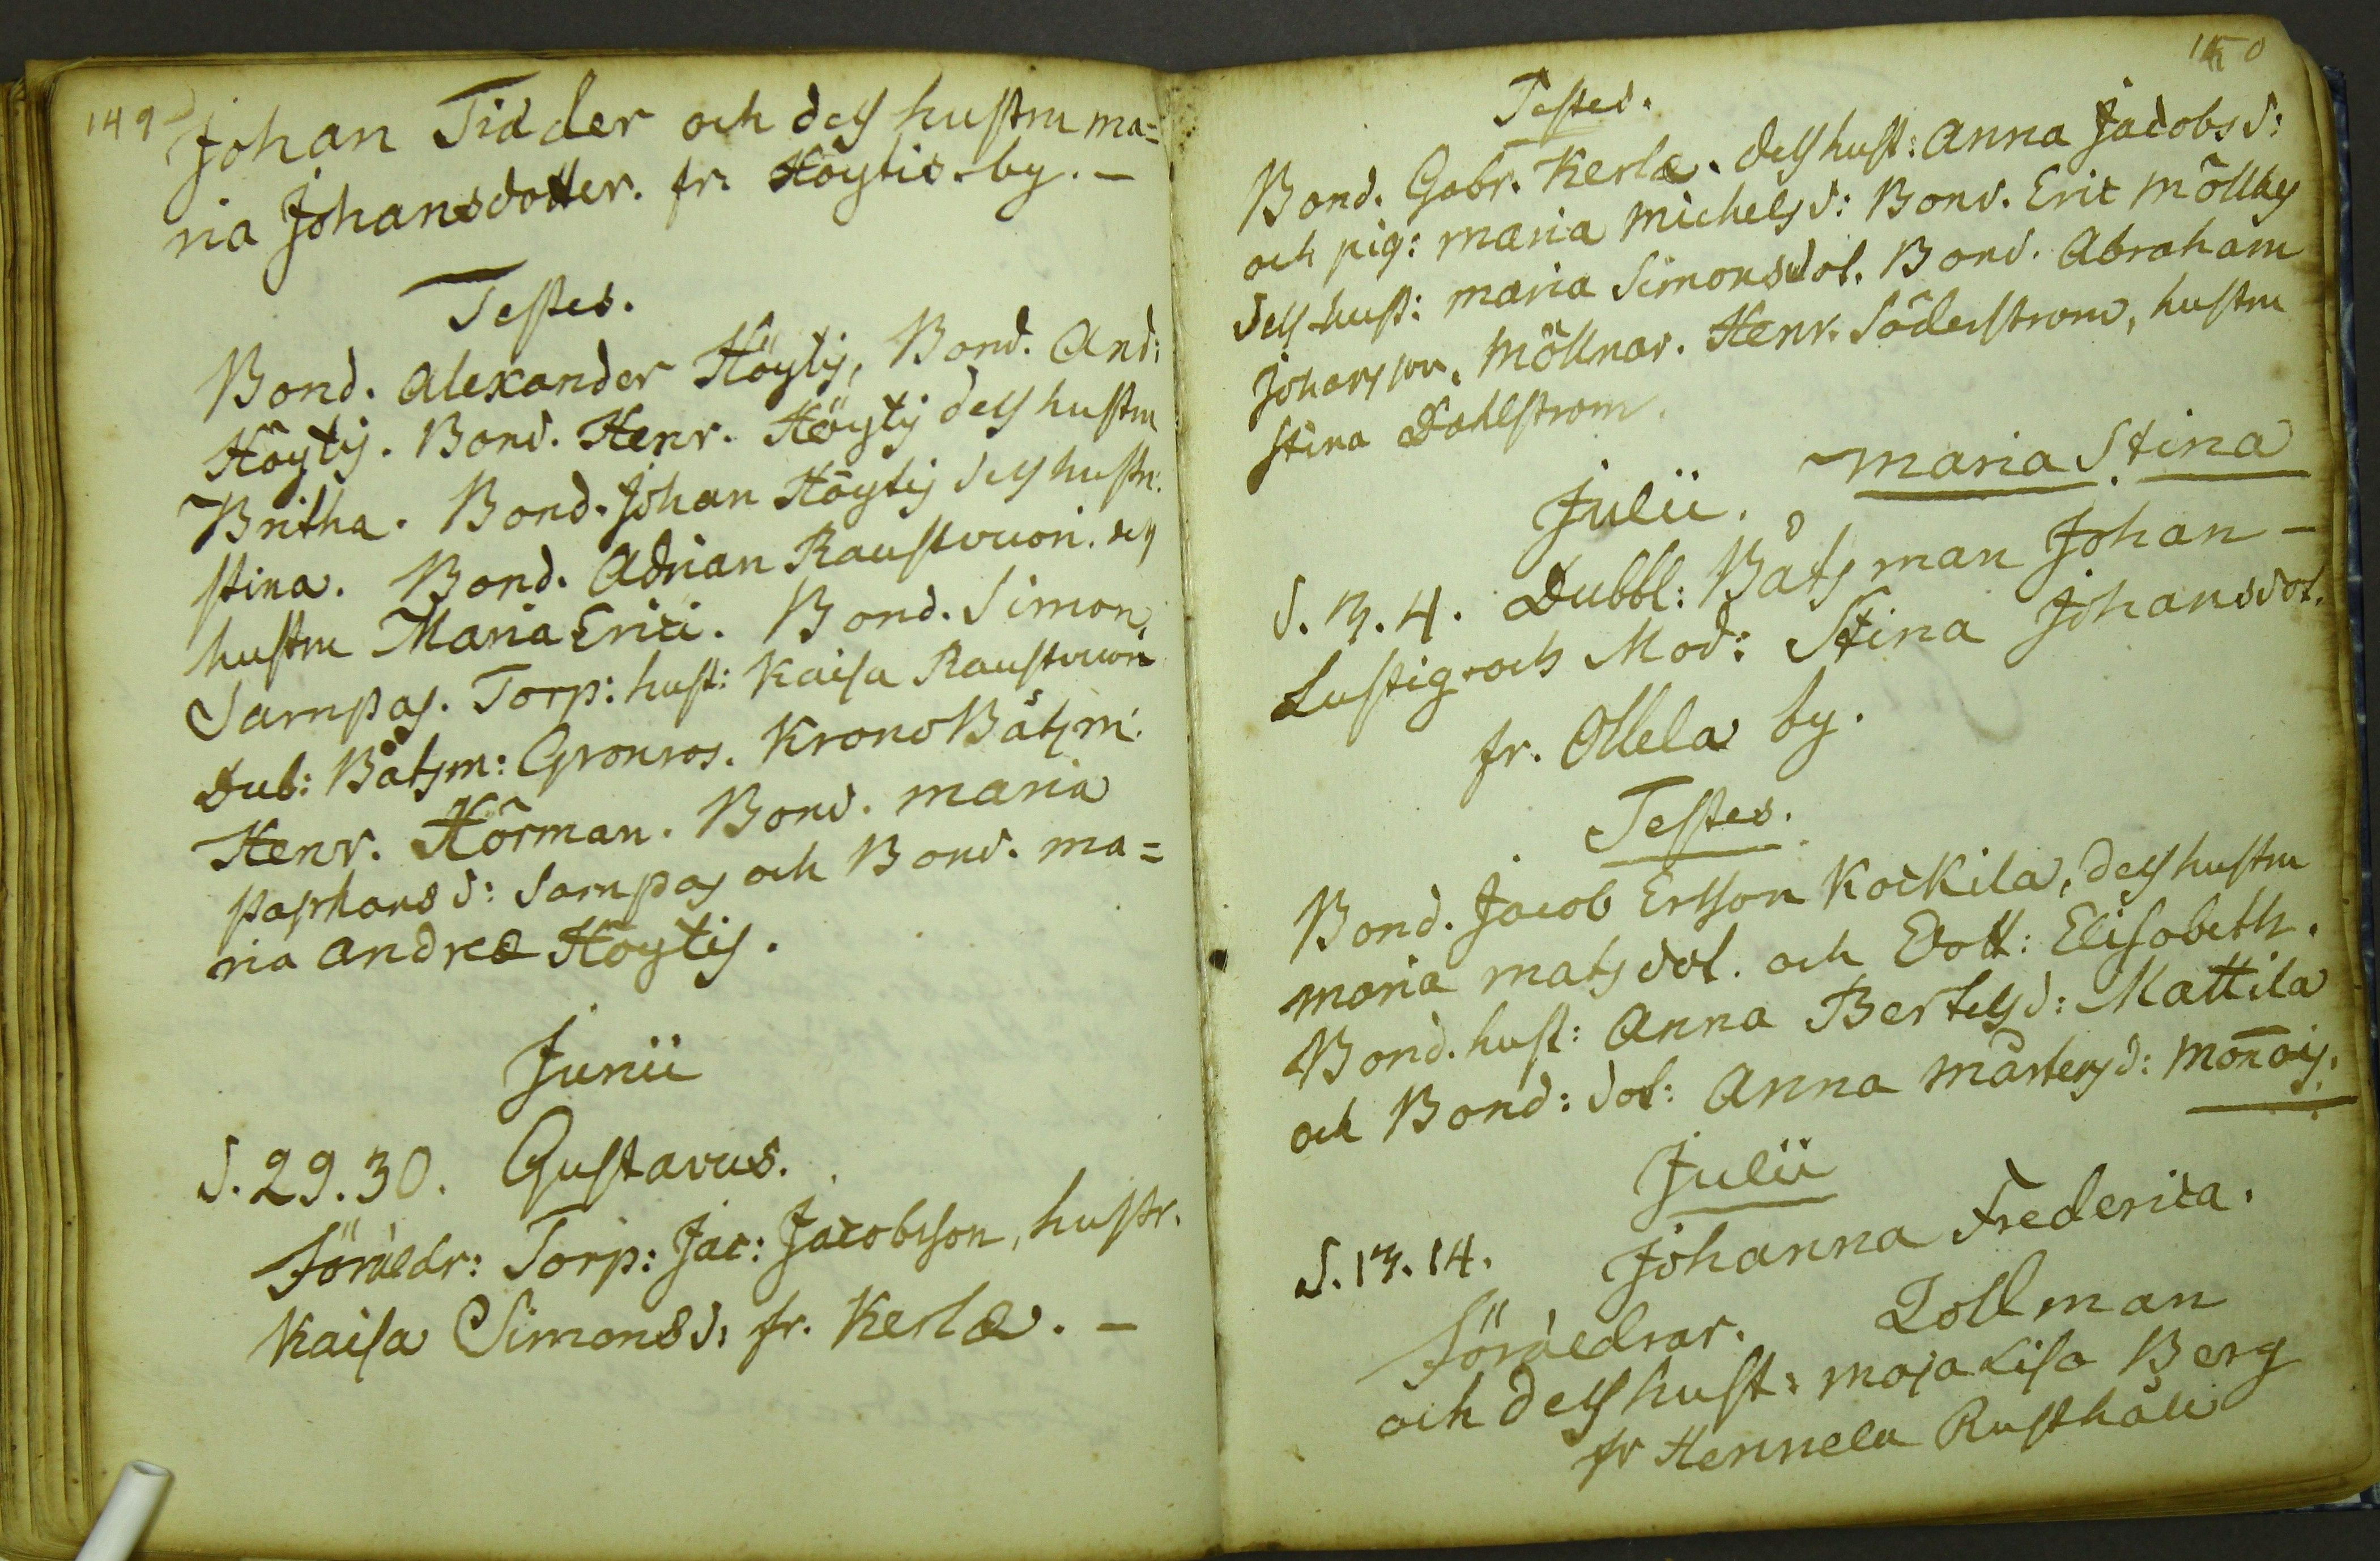 149
Johan Tidder och dess hustru ma=
ria Johansdotter. fr. Höytis by. –
Testes.
Bond. Alexander Höytis, Bond. And:
Höytis. Bond. Henr. Höytis dess hustru
Britha. Bond. Johan Höytis dess hustr:
Stina. Bond. Adrian Raustvuori. dess
hustru Maria Erici. Bond. Simon
Sampas. Torp: hust: Kaisa Raustvuori
Dub: Båtsm: Gronros. Krono Båtsm:
Henr. Hörman. Bond. maria
Staphans d: Sampas och Bond. ma=
ria Andreæ Höytis.
Junii
d. 29. 30. Gustavus.
Föräldr: Torp: Jac: Jacobsson, hustr.
Kaisa Simons d: fr. Kerlæ. –
150
Testes.
Bond. Gabr. Kerlæ. dess hust: Anna Jacobs d:
och pig: maria michels d: Bond. Eric Möllys
dess hust: maria Simonsdot. Bond. Abraham
Johansson, Möllnar. Henr. Söderstrom, hustru
Stina Dahlstrom.
Julii. Maria Stina
d. 3. 4. Dubbl: Båtsman Johan –
Lustig och Mod: Stina Johansdot.
fr. Ollela by.
Testes.
Bond. Jacob Ersson Kockila, dess hustru
maria mats dot. och Dott: Elisabeth.
Bond. hust: Anna Bertels d: Mattila
och Bond: dot: Anna mårtens d: Monois.
Julii
d. 13. 14. Johanna Frederica.
Föräldrar. Zollman
och dess hust: maja Lisa Berg
fr Hennela Rusthåll